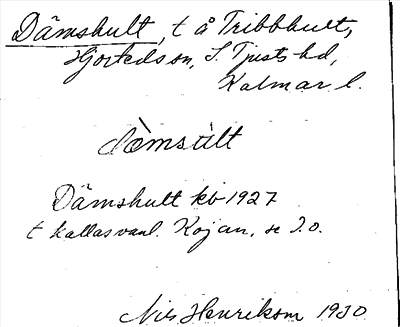 Dämshult, t å Tribbhult,
Hjorteds sn, S. Tjusts hd,
Kalmar l.
dömsult
Dämshult kb 1927
t kallas vanl. Kojan, se d.o.
Nils Henrikson 1930